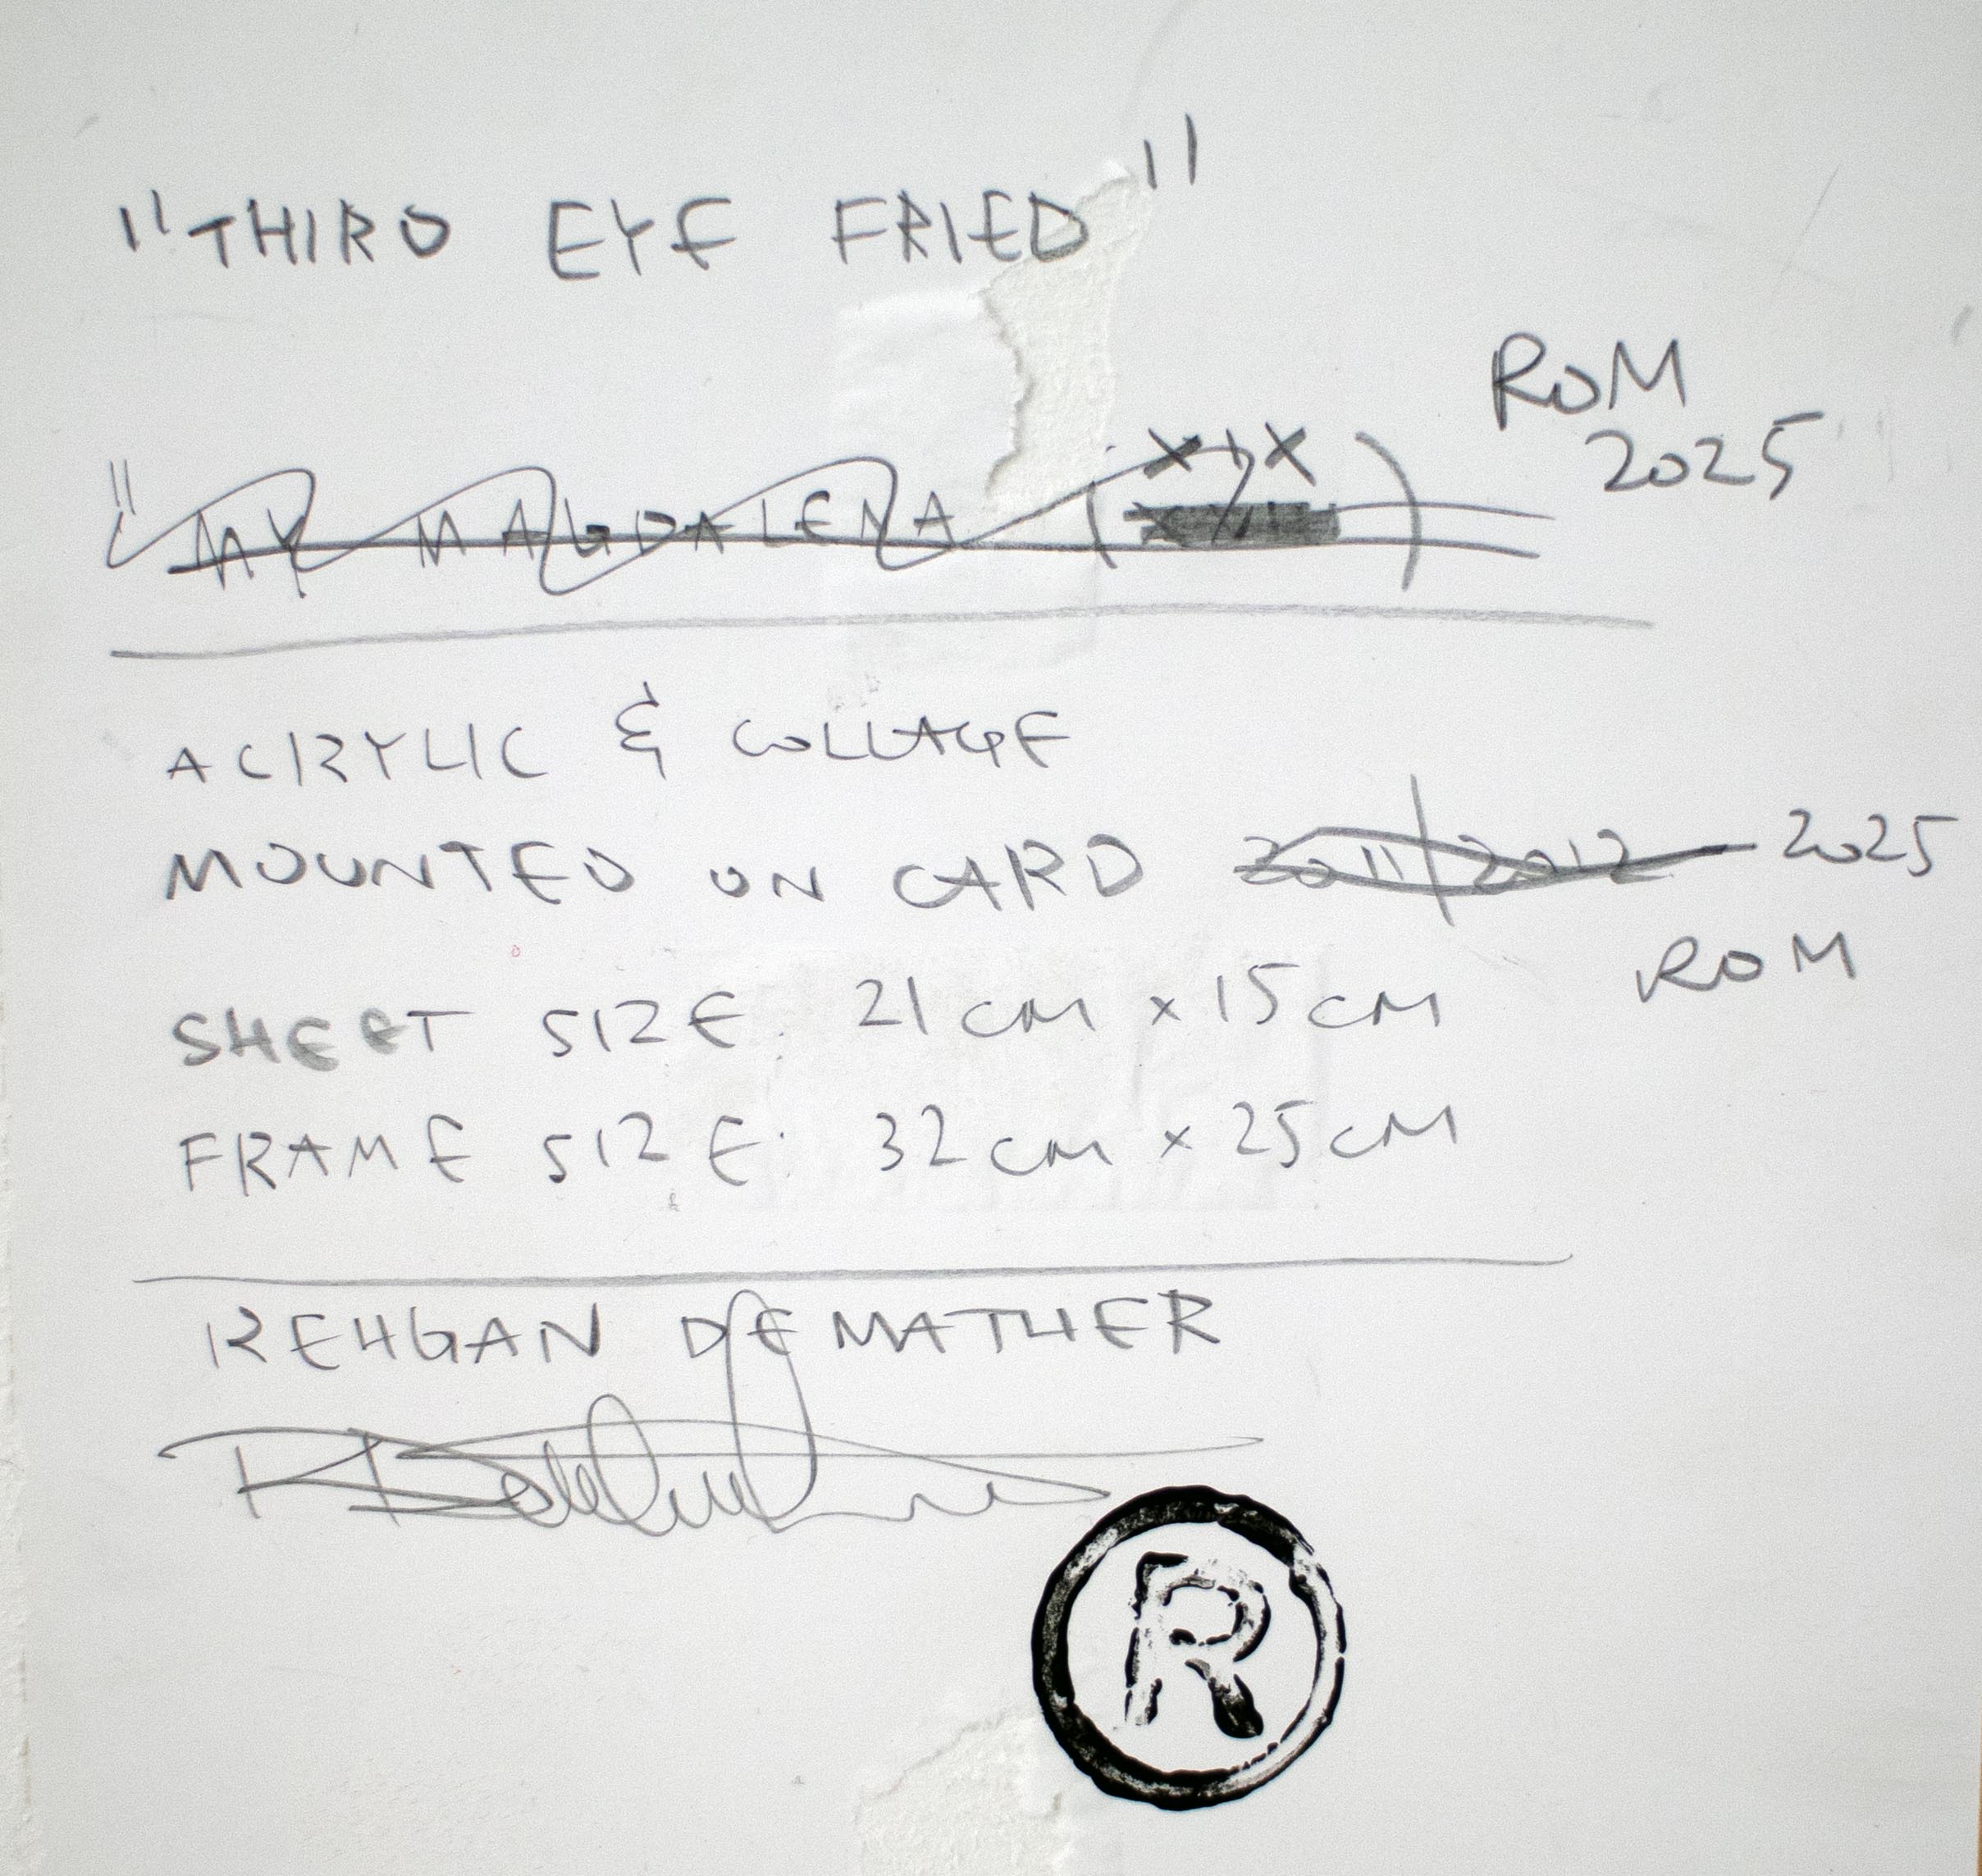 "THIRD EYE FRIED"
ROM
2025
"MY MAGDALENA (XIX)
ACRYLIC & COLLAGE
MOUNTED ON CARD 2011/2012 2025
ROM
SHEET SIZE: 21CM x 15CM
FRAME SIZE: 32CM x 25CM
REHGAN DE MATHER
R